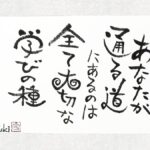 あなたが
通る道
にあるのは
全て大切な
学びの種
uki